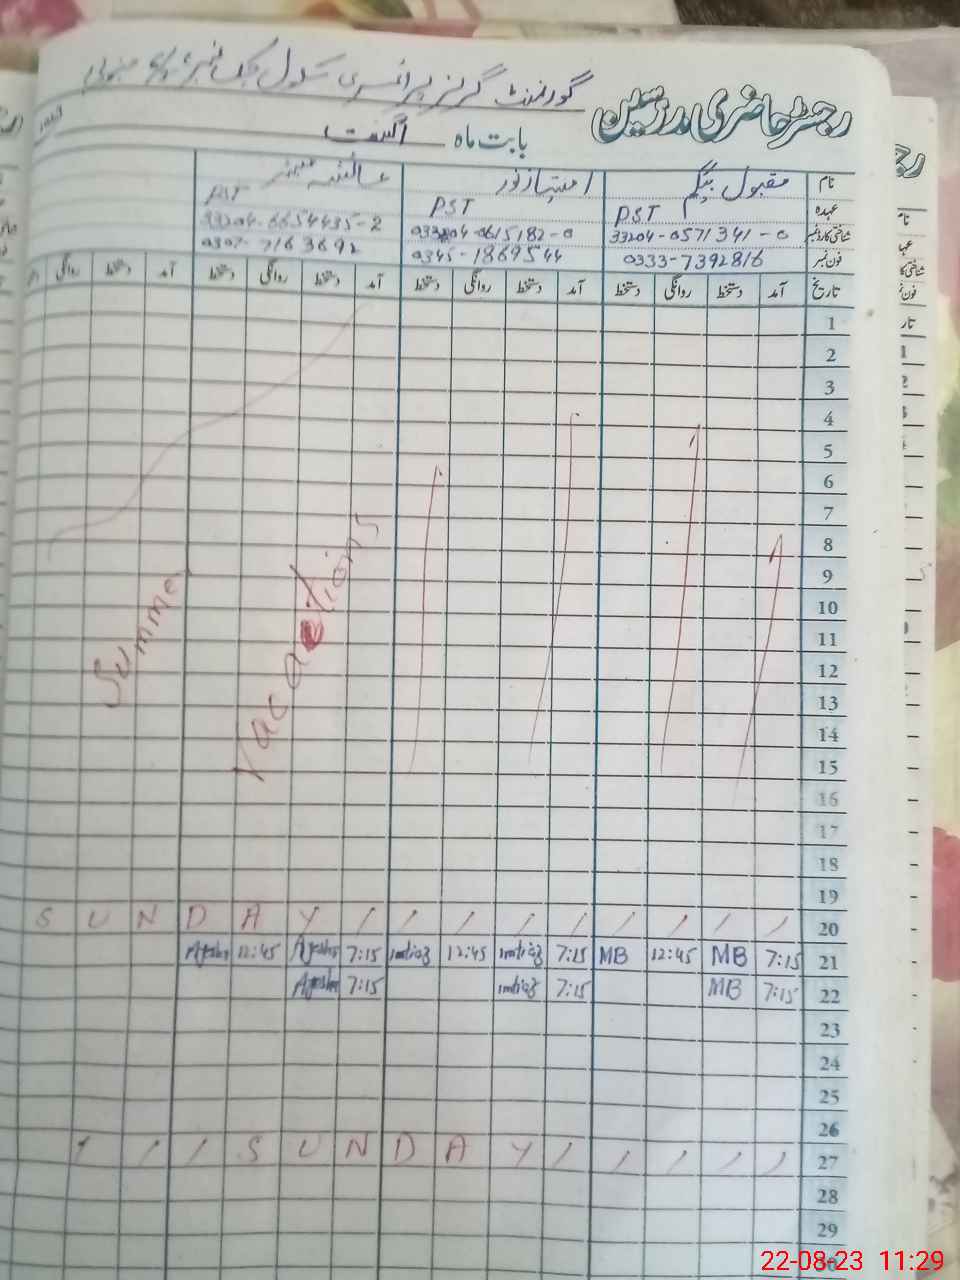 رجسٹر حاضری مدرسین
گورنمنٹ گرلز پرائمری سکول چک نمبر
بابت ماہ اگست
نام مقبول بیگم امتیاز نور عائشہ
عہدہ PST PST PST
شناختی کارڈ نمبر 33204-0571341-0 -0615182-0 33204-6654435-2
فون نمبر 0333-7392816 0345-1869544 0307-7163692
تاریخ آمد دستخط روانگی دستخط آمد دستخط روانگی دستخط آمد دستخط روانگی دستخط آمد دستخط روانگی
1
2
3
4
5
6
7
8
9
10
11
12
13
14
15
Summer
Vacations
16
17
18
19
20 SUNDAY
21 7:15 MB 12:45 MB 7:15 imtiaz 12:45 imtiaz 7:15 Ayesha 12:45 Ayesha
22 7:15 MB 7:15 imtiaz 7:15 Ayesha
23
24
25
26
27 SUNDAY
28
29
30
22-08-23 11:29